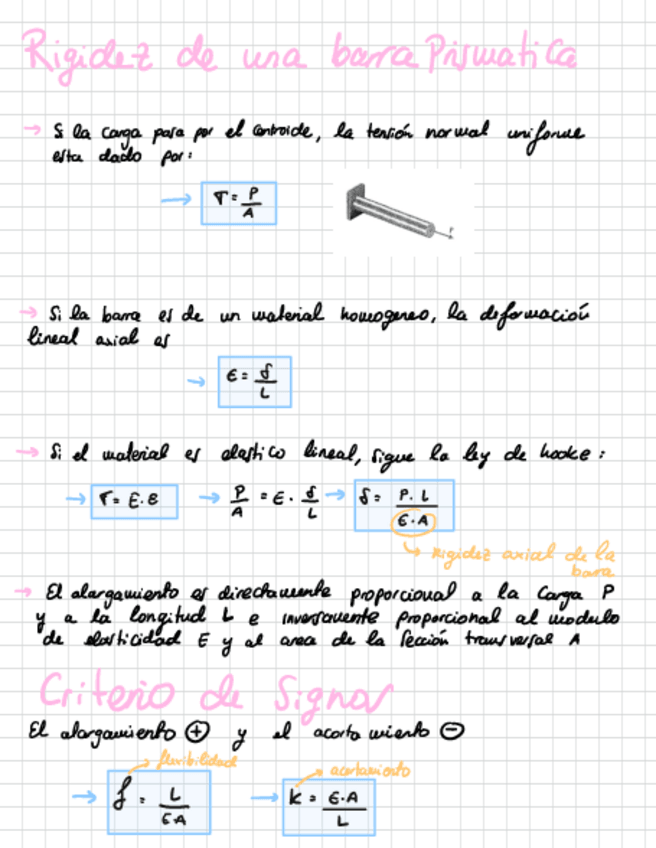 Rigidez de una barra Prismatica
→ Si la carga pasa por el centroide, la tensión normal uniforme
esta dado por:
→ σ = P/A
P
→ Si la barra es de un material homogeneo, la deformación
lineal axial es
→ ε = δ/L
→ Si el material es elastico lineal, sigue la ley de hooke:
→ σ = E·ε → P/A = E · δ/L → δ = P·L/E·A
↳ rigidez axial de la
barra
→ El alargamiento es directamente proporcional a la carga P
y a la longitud L e inversamente proporcional al modulo
de elasticidad E y al area de la sección transversal A
Criterio de Signos
El alargamiento ⊕ y el acortamiento ⊖
→ flexibilidad → acortamiento
→ f = L/EA → k = E·A/L